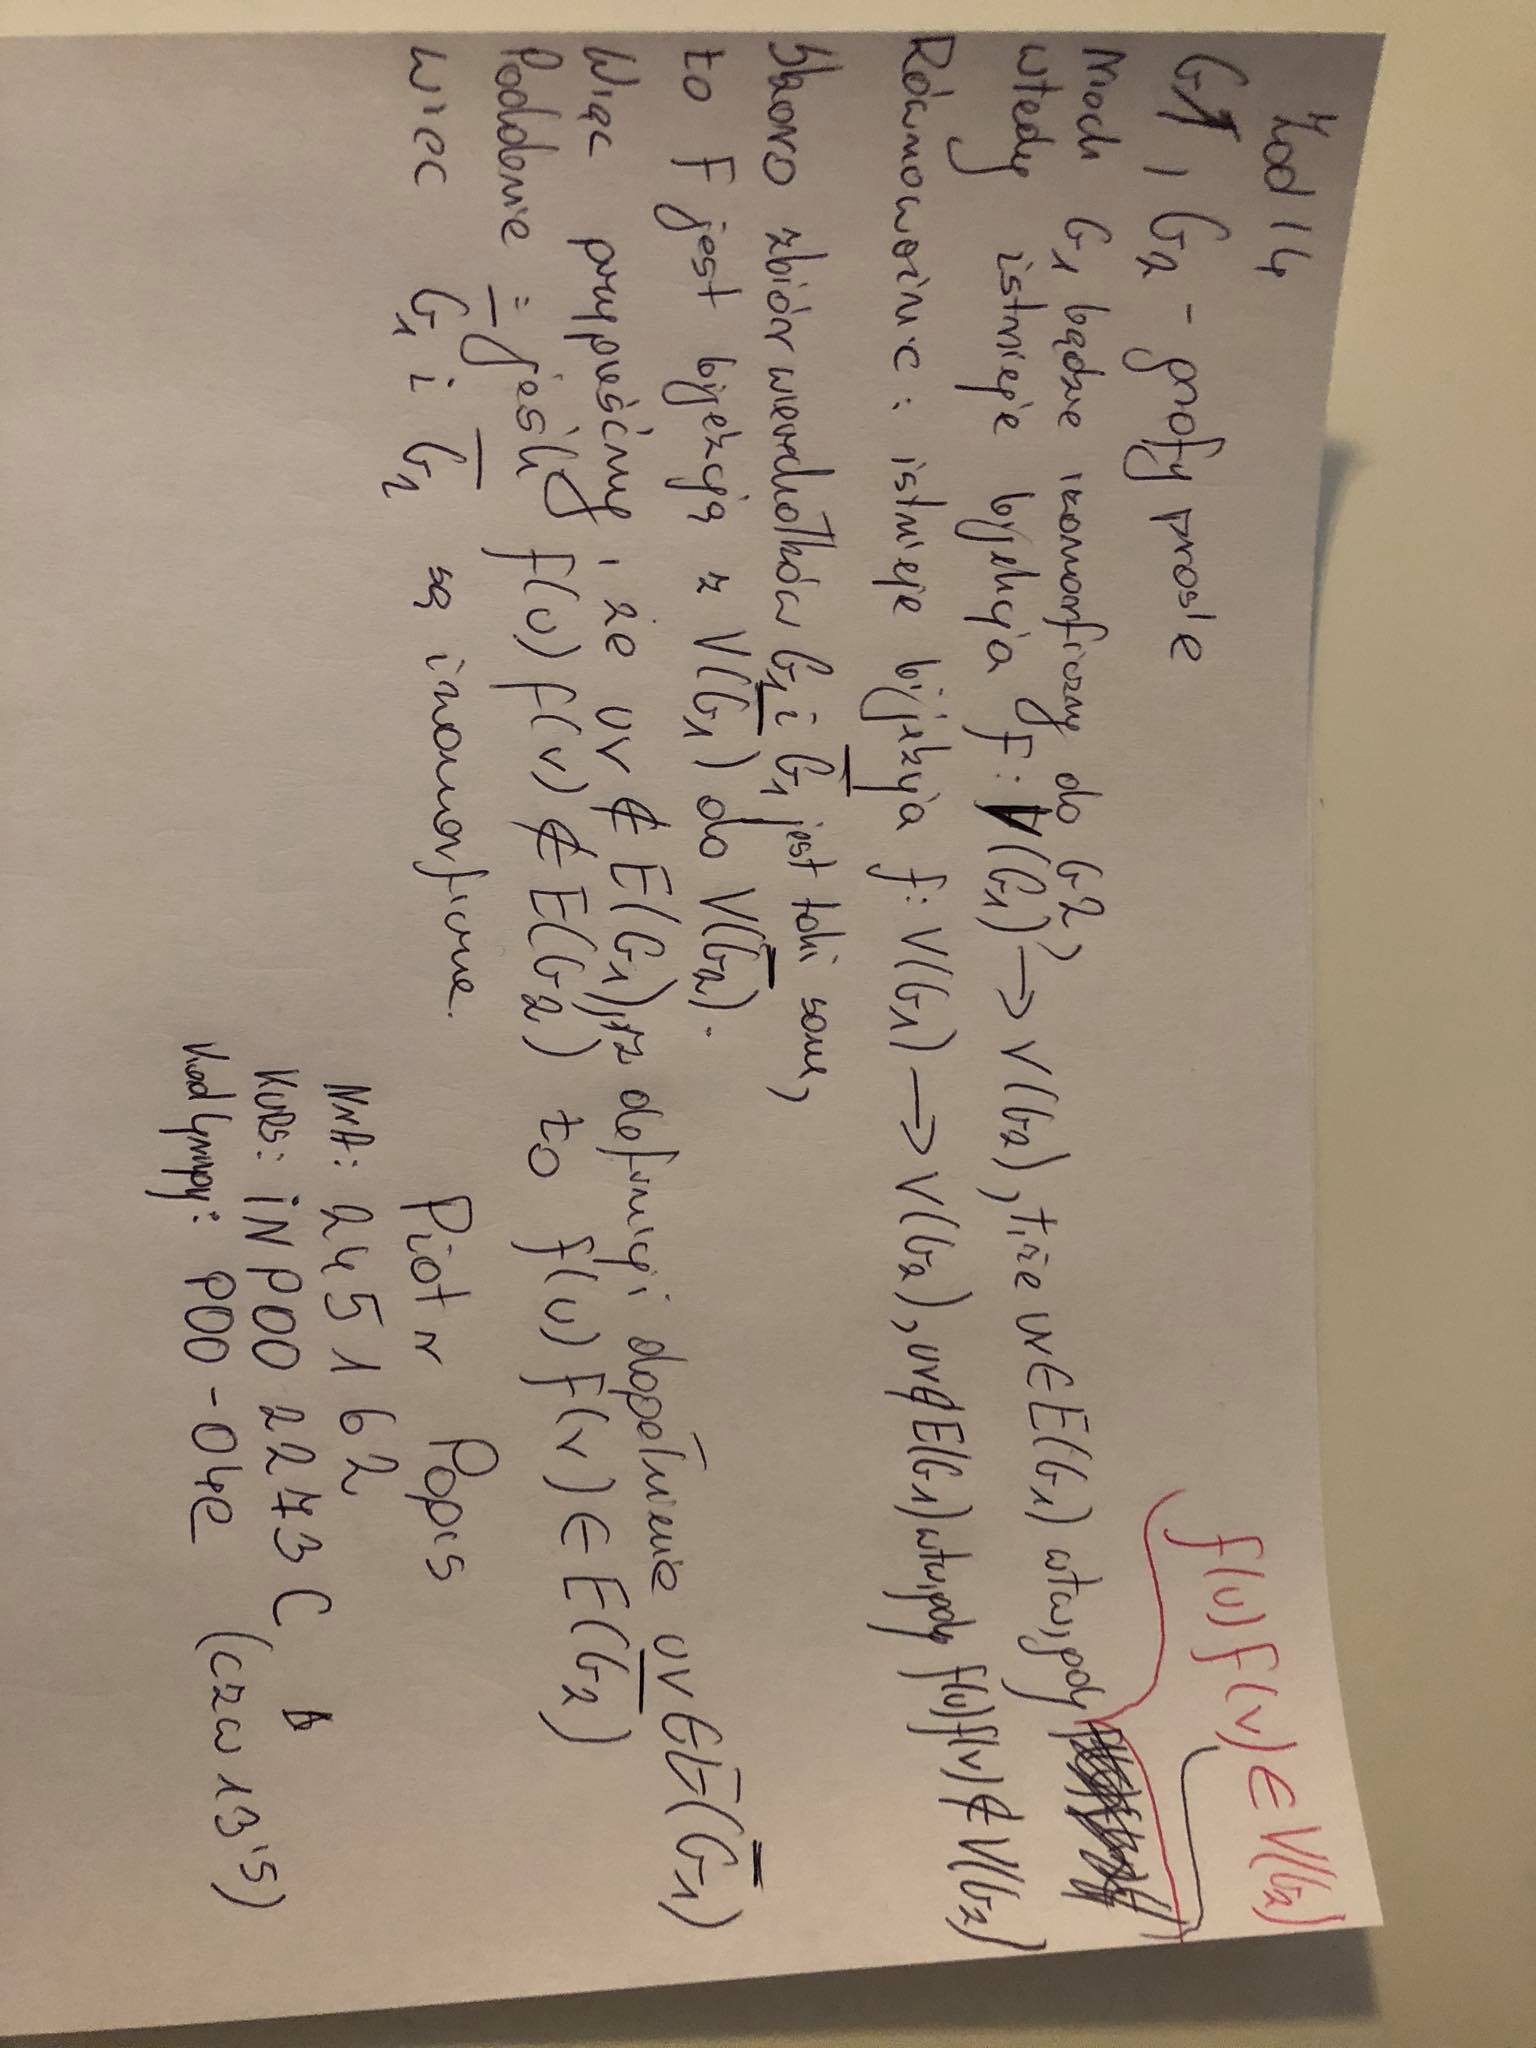 Zad 14
G1, G2 - grafy proste
f(u)f(v) ∈ V(G2)
Niech G1 będzie izomorficzny do G2,
wtedy istnieje bijekcja f: V(G1) → V(G2), t, że uv ∈ E(G1) wtw, gdy
Równoważnie: istnieje bijekcja f: V(G1) → V(G2), uv ∉ E(G1) wtw, gdy f(u)f(v) ∉ V(G2)
Skoro zbiór wierzchołków G1 i G̅1 jest taki sam,
to f jest bijekcją z V(G̅1) do V(G̅2).
Więc przypuśćmy, że uv ∉ E(G1), z definicji dopełnienie uv ∈ E(G̅1)
Podobnie = jeśli f(u)f(v) ∉ E(G2) to f(u)f(v) ∈ E(G̅2)
więc G̅1 i G̅2 są izomorficzne.
Piotr Popis
NrA: 245162
KURS: INP002273C
Kod grupy: P00-04e (czw 13:15)